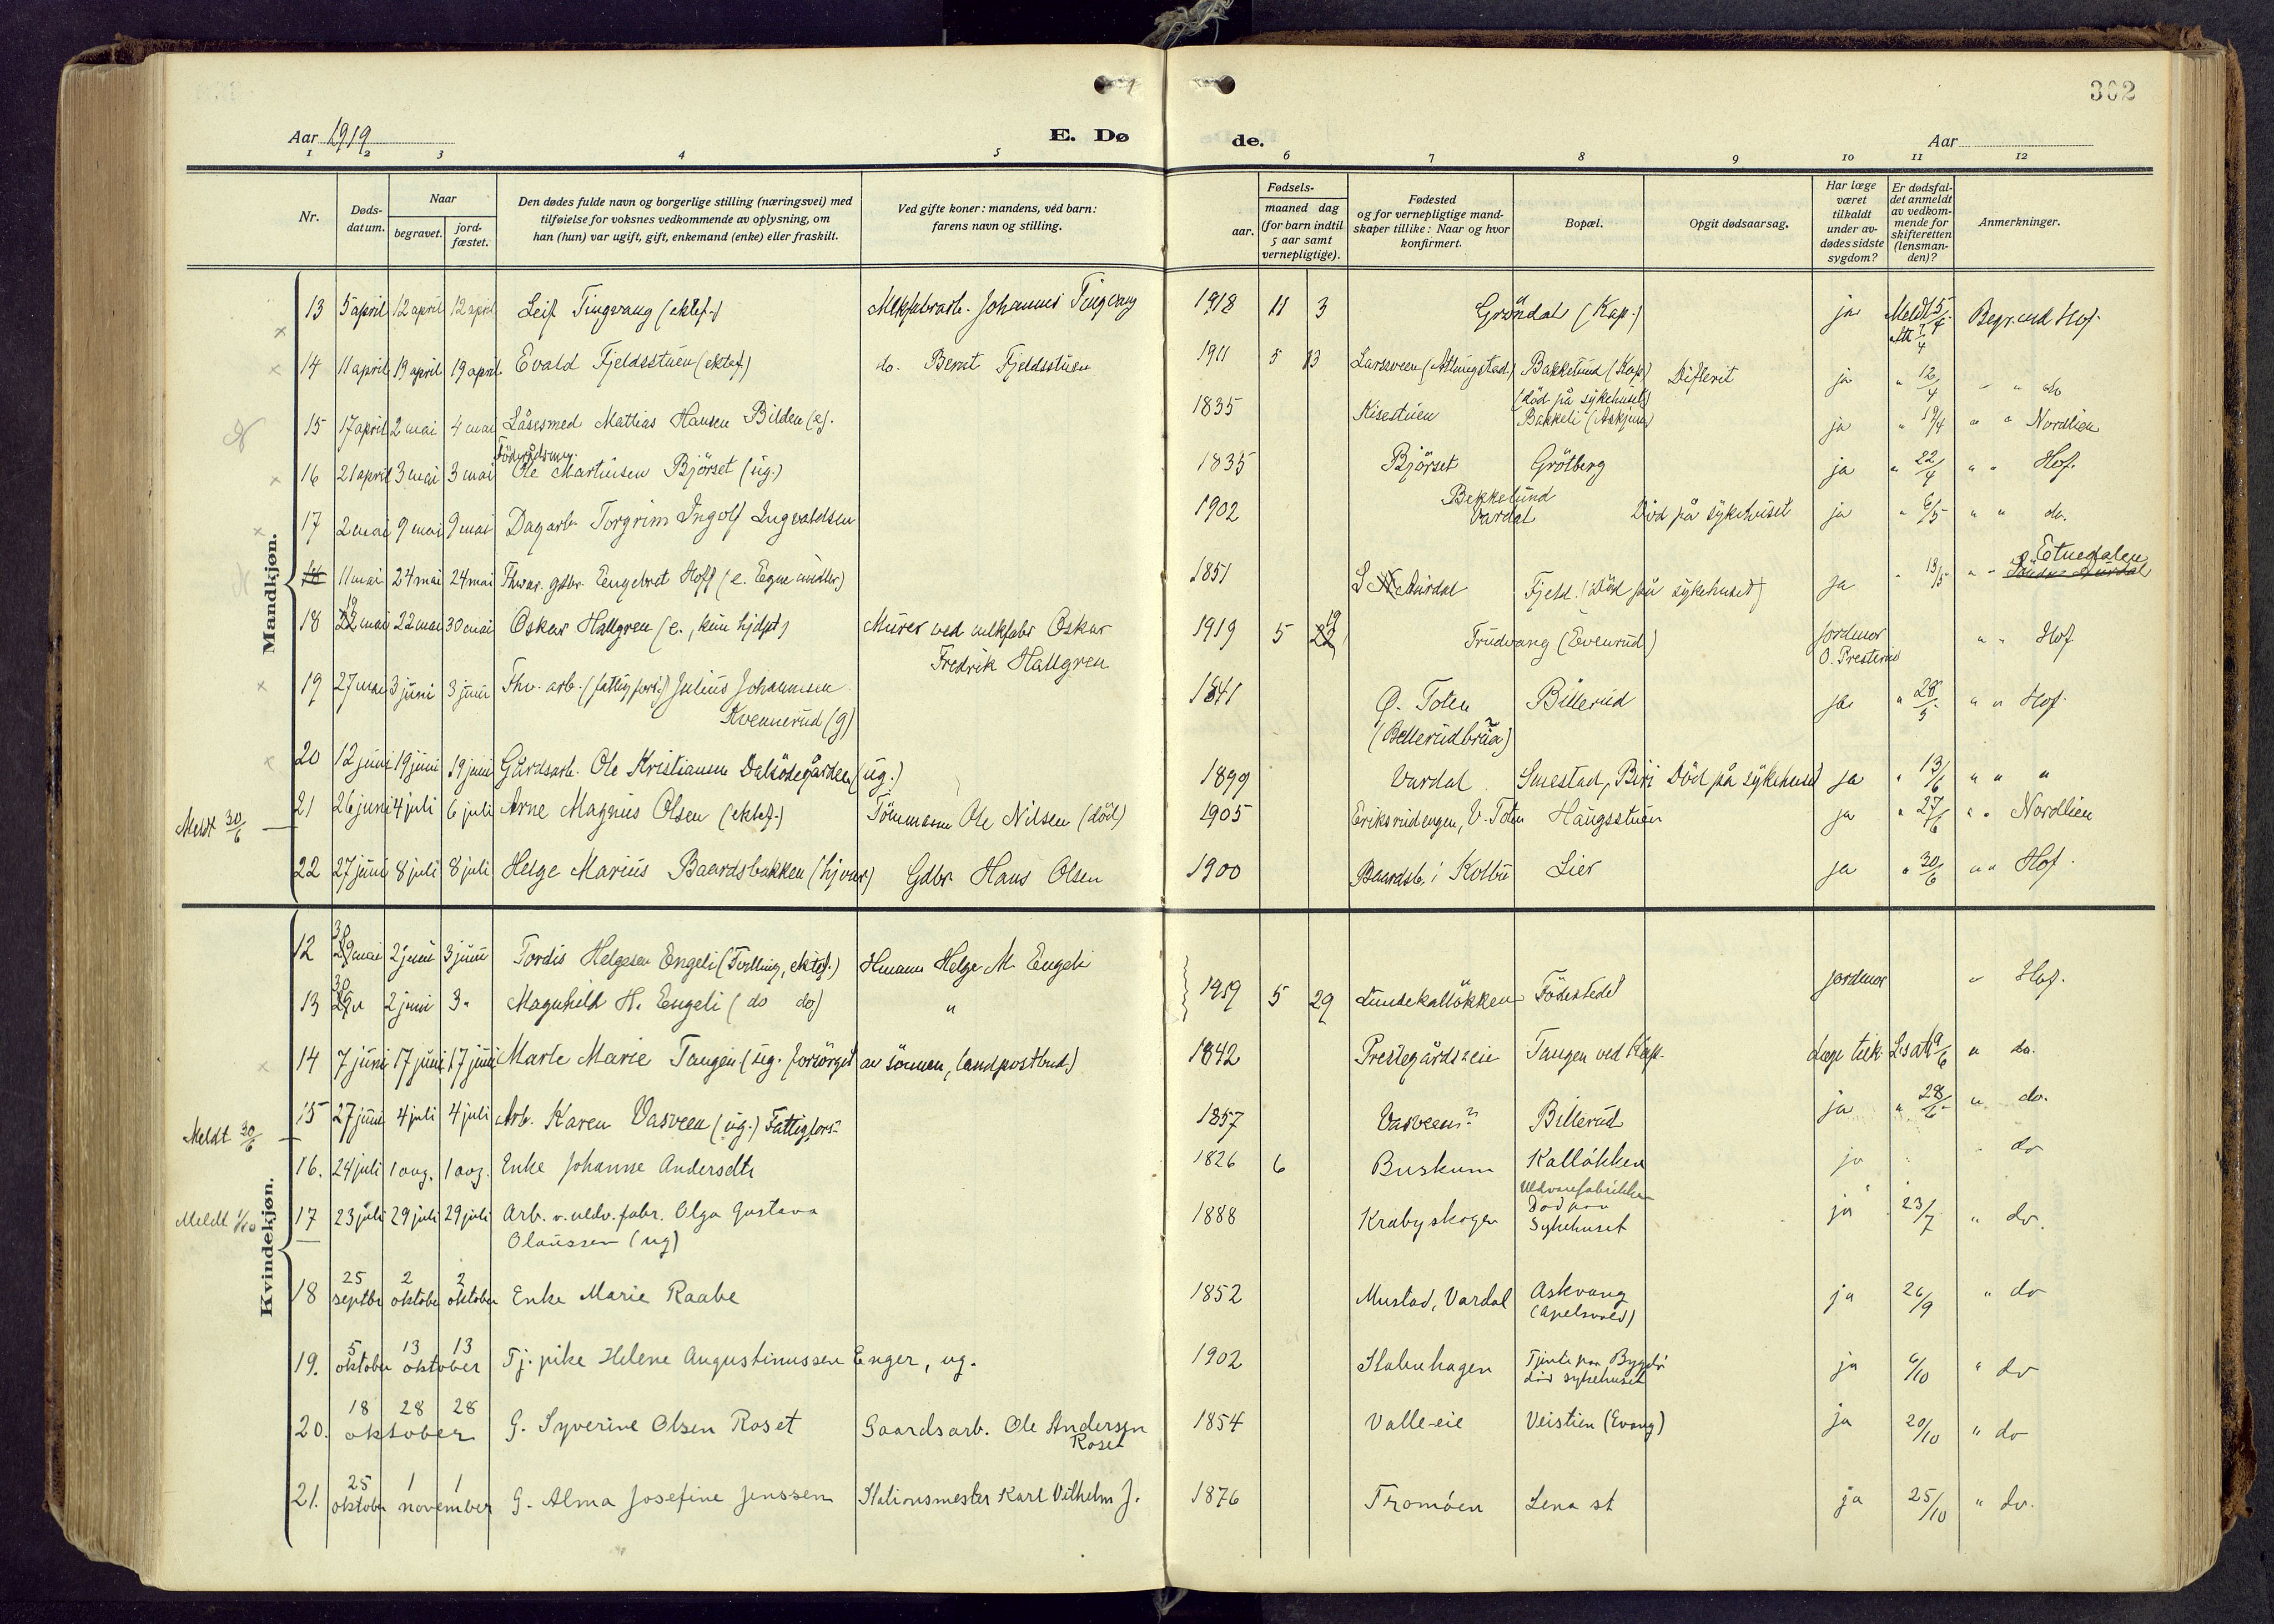 302
Aar 1919
E. Døde.
Aar
1 2 3 4 5 6 7 8 9 10 11 12
Nr.
Døds-datum.
Naar
begravet.
jord-fæstet.
Den dødes fulde navn og borgerlige stilling (næringsvei) med
tilføielse for voksnes vedkommende av oplysning, om
han (hun) var ugift, gift, enkemand (enke) eller fraskilt.
Ved gifte koner: mandens, ved barn:
farens navn og stilling.
Fødsels-
aar.
maaned dag
(for barn indtil
5 aar samt
vernepligtige).
Fødested
og for vernepligtige mand-
skaper tillike: Naar og hvor
konfirmert.
Bopæl.
Opgit dødsaarsag.
Har læge
været
tilkaldt
under av-
dødes sidste
sygdom?
Er dødsfal-
det anmeldt
av vedkom-
mende for
skifteretten
(lensman-
den)?
Anmerkninger.
Mandkjøn.
13 5 april 12 april 12 april Leif Tingvang (ektef.) Johannes Tingvang 1918 11 3 Gröndal (Kap.) ja Meldt 5/4 Att 7/4 Begr. ved Hof.
14 11 april 19 april 19 april Evald Fjeldsstuen (ektef) do. Bernt Fjeldsstuen 1911 5 13 Larsveen Bakkelund (Kap) Difterit ja " 12/4 " " do
(död på sykehuset)
15 17 april 2 mai 4 mai Låsesmed Mathias Hansen Bilden (e). 1835 Kisestuen Bakkeli (Askjum) ja " 19/4 " " Nordlien
16 21 april 3 mai 3 mai Ole Martinsen Bjørset (ug.) 1835 Bjørset Grötberg ja " 22/4 " " Hof.
17 2 mai 9 mai 9 mai Dagarb. Torgrim Ingolf Ingvaldsen 1902 Bekkelund Vardal Död på sykehuset ja " 6/5 " " do.
11 mai 24 mai 24 mai Engebret Hoff 1851 Aurdal Fjeld. (Död på sykehuset) ja " 13/5 " " Etnedalen
18 19 22 mai 22 mai 30 mai Oskar Hallgren (e., kun hjdpt) Murer ved Oskar Fredrik Hallgren 1919 5 19 22 Trudvang (Evenrud) Jordmor O. Presterud " " Hof
19 27 mai 3 juni 3 juni Fhv. arb. (fattigfors.) Julius Johannesen Kvennerud (g) 1841 Ø. Toten (Bellerudbrua) Billerud ja " 28/5 " " Hof.
20 12 juni 19 juni 19 juni Gårdsarb. Ole Kristiansen Dalsödegården (ug.) 1899 Vardal Smestad, Biri Död på sykehuset ja " 13/6 " " "
Meldt 30/6
21 26 juni 4 juli 6 juli Arne Magnus Olsen (ektef.) Tömmerm Ole Nilsen (död) 1905 Eriksrudengen, V. Toten Haugsstuen ja " 27/6 " " Nordlien
22 27 juni 8 juli 8 juli Helge Marius Baardsbakken Gdbr Hans Olsen 1900 Baardsb. i Kolbu Lier ja " 30/6 " " Hof.
Kvindekjøn.
12 30 29 mai 2 juni 3 juni Tordis Helgesen Engeli (Tvilling, ektef.) Helge M. Engeli
13 30 29 " 2 juni 3 " Magnhild H. Engeli (do do) " 1919 5 29 Lundekalløkken Födestedet jordmor " Hof.
14 7 juni 17 juni 17 juni Marte Marie Tangen (ug. forsörget av sönnen, landpostbud) 1842 Prestegårdseie Tangen ved Kap. Læge tilk. Ls att 10/6 " do.
Meldt 30/6
15 27 juni 4 juli 4 juli Arb. Karen Vasveen (ug.) Fattigfors. 1857 Vasveen? Billerud ja " 28/6 " do.
16. 24 juli 1 aug. 1 aug. Enke Johanne Andersdtr 1826 6 Buskum Kalløkken ja " " do
Meldt 1/10
17 23 juli 29 juli 29 juli Arb. v. uldv. fabr. Olga Gustava Olaussen (ug) 1888 Krabyskogen Uldvarefabrikken Død paa Sykehuset ja 23/7 " do.
18 25 septbr 2 oktober 2 oktober Enke Marie Raabe 1852 Mustad, Vardal Askvang (Apelsvold) ja 26/9 " do
19. 5 oktober 13 13 oktober Tj. pike Helene Augustinussen Enger, ug. 1902 Stabuhagen Tjente paa Bygdø død sykehuset ja 6/10 " do
20. 18 28 28 oktober G. Syverine Olsen Roset Gaardsarb. Ole Andersen Roset 1854 Valle-eie Veistien (Evang) ja 20/10 " do
21. 25 oktober 1 1 november G. Alma Josefine Jenssen Stationsmester Karl Vilhelm J. 1876 Tromöen Lena st ja 25/10 " do.